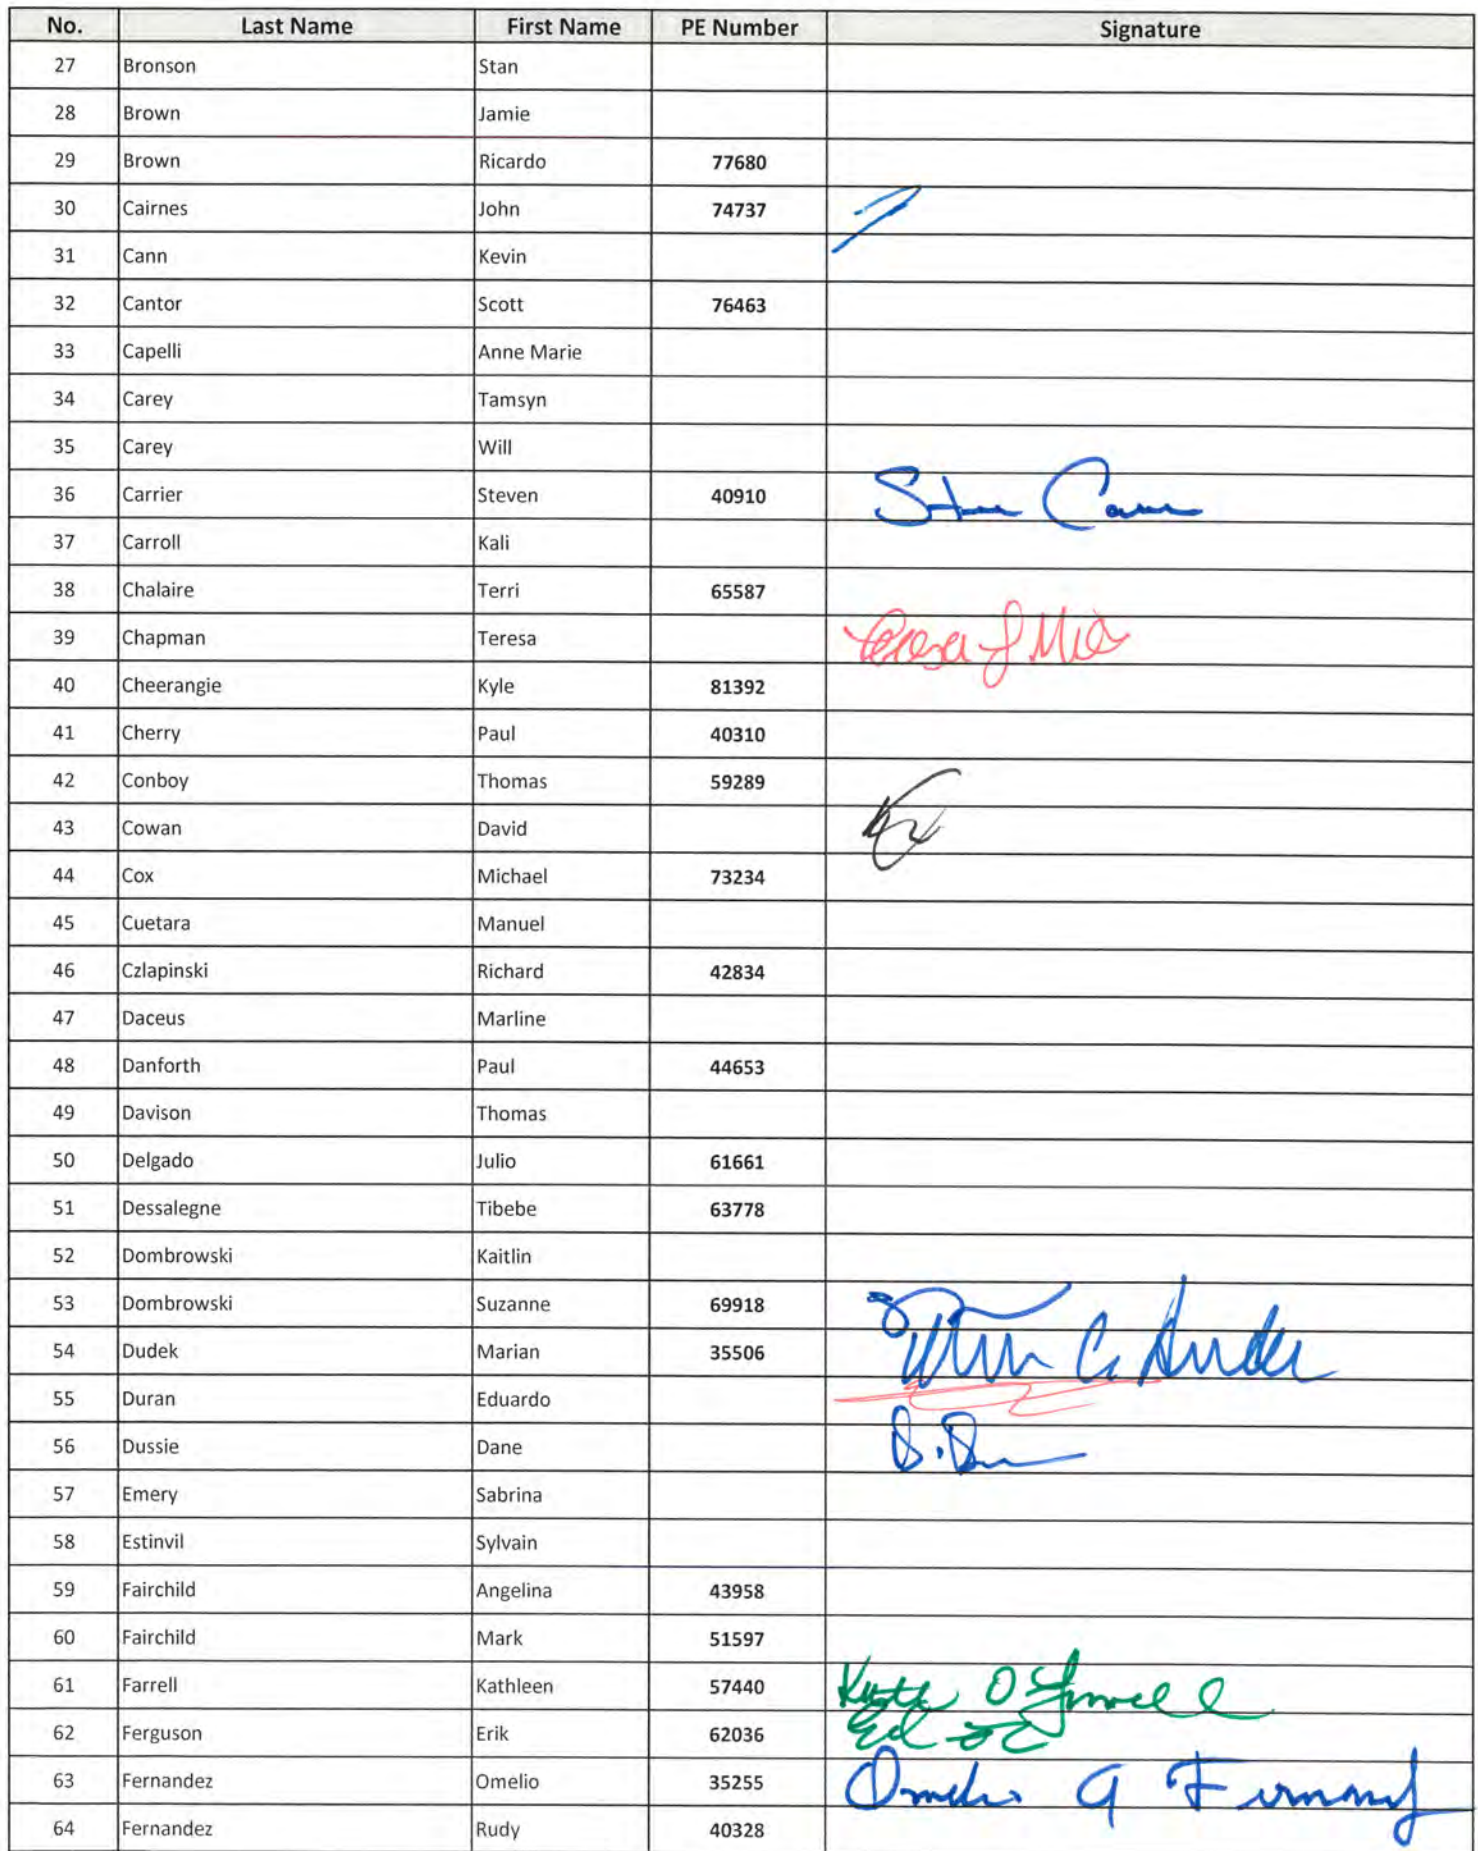 No. Last Name First Name PE Number Signature
27 Bronson Stan
28 Brown Jamie
29 Brown Ricardo 77680
30 Cairnes John 74737
31 Cann Kevin
32 Cantor Scott 76463
33 Capelli Anne Marie
34 Carey Tamsyn
35 Carey Will
36 Carrier Steven 40910
37 Carroll Kali
38 Chalaire Terri 65587
39 Chapman Teresa
40 Cheerangie Kyle 81392
41 Cherry Paul 40310
42 Conboy Thomas 59289
43 Cowan David
44 Cox Michael 73234
45 Cuetara Manuel
46 Czlapinski Richard 42834
47 Daceus Marline
48 Danforth Paul 44653
49 Davison Thomas
50 Delgado Julio 61661
51 Dessalegne Tibebe 63778
52 Dombrowski Kaitlin
53 Dombrowski Suzanne 69918
54 Dudek Marian 35506
55 Duran Eduardo
56 Dussie Dane
57 Emery Sabrina
58 Estinvil Sylvain
59 Fairchild Angelina 43958
60 Fairchild Mark 51597
61 Farrell Kathleen 57440
62 Ferguson Erik 62036
63 Fernandez Omelio 35255
64 Fernandez Rudy 40328